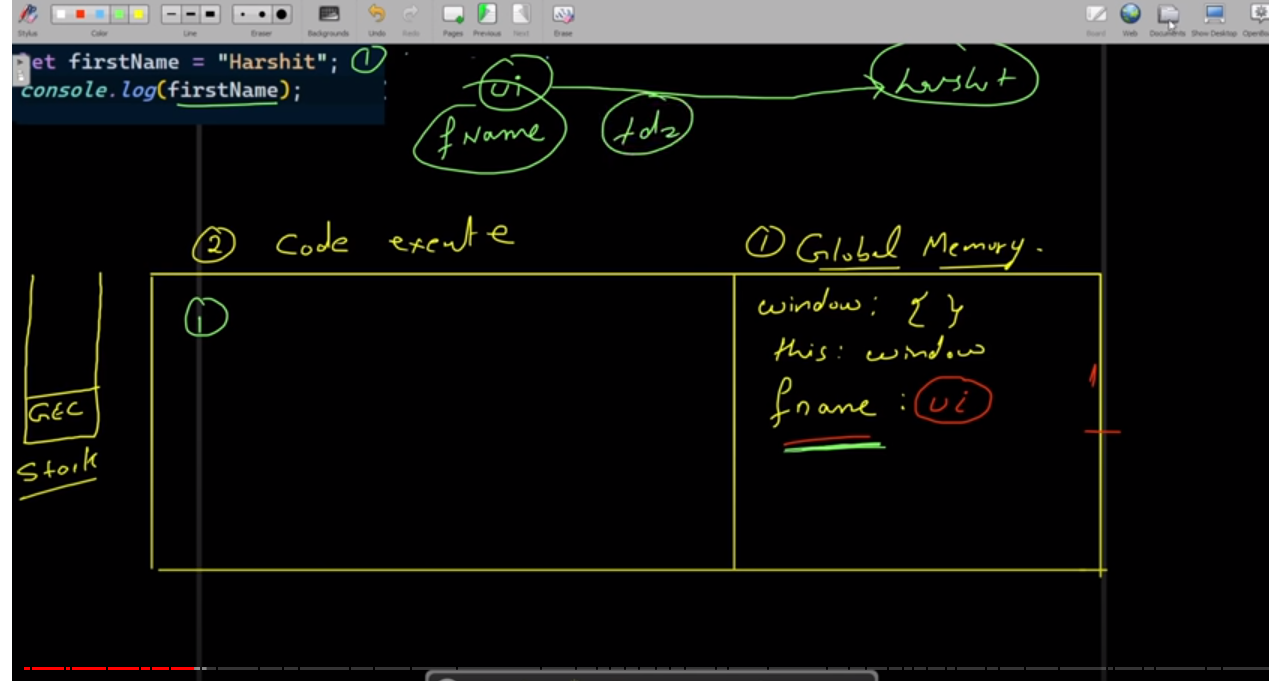 Stylus Color Line Eraser Backgrounds Undo Redo Pages Previous Next Erase Board Web Documents Show Desktop OpenBoa
let firstName = "Harshit"; ①
console.log(firstName);
ui
harshit
fName
tdz
② Code execute
① Global Memory.
①
window: { }
this: window
fname : ui
GEC
Stack